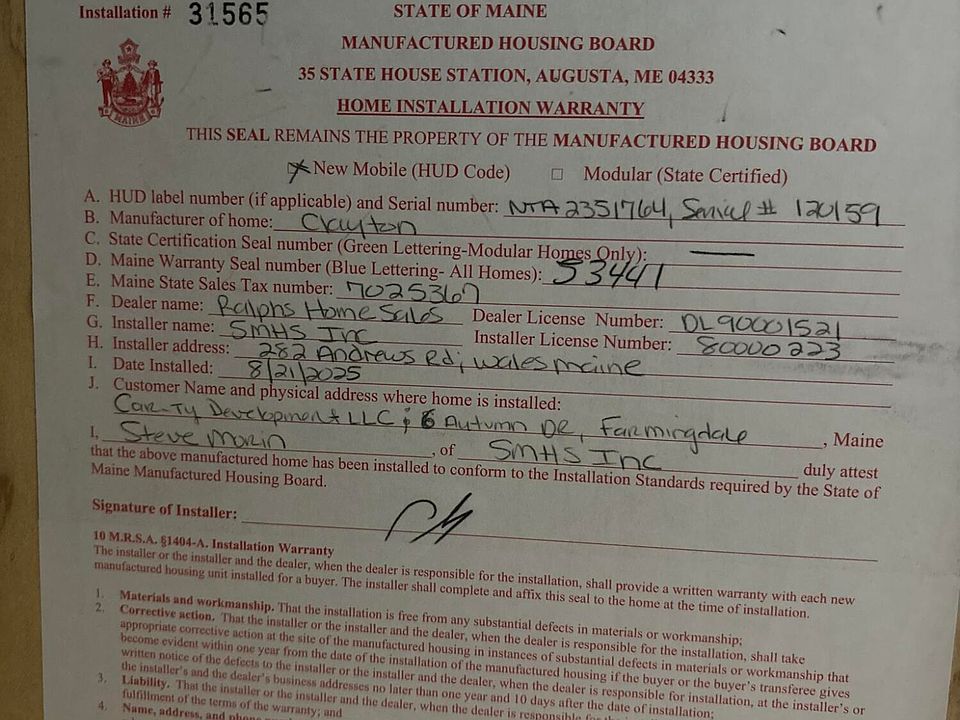 Installation # 31565
STATE OF MAINE
MANUFACTURED HOUSING BOARD
35 STATE HOUSE STATION, AUGUSTA, ME 04333
HOME INSTALLATION WARRANTY
THIS SEAL REMAINS THE PROPERTY OF THE MANUFACTURED HOUSING BOARD
New Mobile (HUD Code) Modular (State Certified)
A. HUD label number (if applicable) and Serial number: NTA 2351764, Serial # 120159
B. Manufacturer of home: Clayton
C. State Certification Seal number (Green Lettering-Modular Homes Only): —
D. Maine Warranty Seal number (Blue Lettering- All Homes): 53441
E. Maine State Sales Tax number: 7025367
F. Dealer name: Ralphs Home Sales Dealer License Number: DL90001521
G. Installer name: SMHS Inc Installer License Number: 80000223
H. Installer address: 282 Andrews Rd, Wales Maine
I. Date Installed: 8/21/2025
J. Customer Name and physical address where home is installed:
Car-Ty Development LLC ; 6 Autumn DR, Farmingdale, Maine
I, Steve Morin, of SMHS Inc duly attest
that the above manufactured home has been installed to conform to the Installation Standards required by the State of
Maine Manufactured Housing Board.
Signature of Installer:
10 M.R.S.A. §1404-A. Installation Warranty
The installer or the installer and the dealer, when the dealer is responsible for the installation, shall provide a written warranty with each new
manufactured housing unit installed for a buyer. The installer shall complete and affix this seal to the home at the time of installation.
1. Materials and workmanship. That the installation is free from any substantial defects in materials or workmanship;
2. Corrective action. That the installer or the installer and the dealer, when the dealer is responsible for the installation, shall take
appropriate corrective action at the site of the manufactured housing in instances of substantial defects in materials or workmanship that
become evident within one year from the date of the installation of the manufactured housing if the buyer or the buyer's transferee gives
written notice of the defects to the installer or the installer and the dealer, when the dealer is responsible for installation, at the installer's or
the installer's and the dealer's business addresses no later than one year and 10 days after the date of installation;
3. Liability. That the installer or the installer and the dealer, when the dealer is responsible for the
fulfillment of the terms of the warranty; and
4. Name, address, and phone